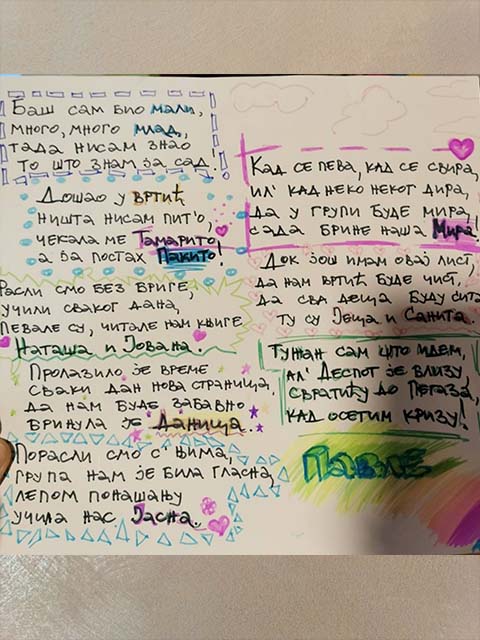 Баш сам био мали,
много, много млад,
тада нисам знао
то што знам ја сад!
Дошао у вртић
ништа нисам пит'о,
чекала ме Тамарито
а ја постах Пакито!
Расли смо без бриге,
учили сваког дана,
певале су, читале нам књиге
Наташа и Јована.
Пролазило је време
сваки дан нова страница,
да нам буде забавно
бринула је Даница.
Порасли смо с' њима,
група нам је била гласна,
лепом понашању
учила нас Јасна.
Кад се пева, кад се свира,
ил' кад неко неког дира,
да у групи буде мира,
сада брине наша Мира!
Док још имам овај лист,
да нам вртић буде чист,
да сва деца буду сита
ту су Јеца и Санита.
Тужан сам што идем,
ал' Деспот је близу
свратићу до Пегаза,
кад осетим кризу!
Павле